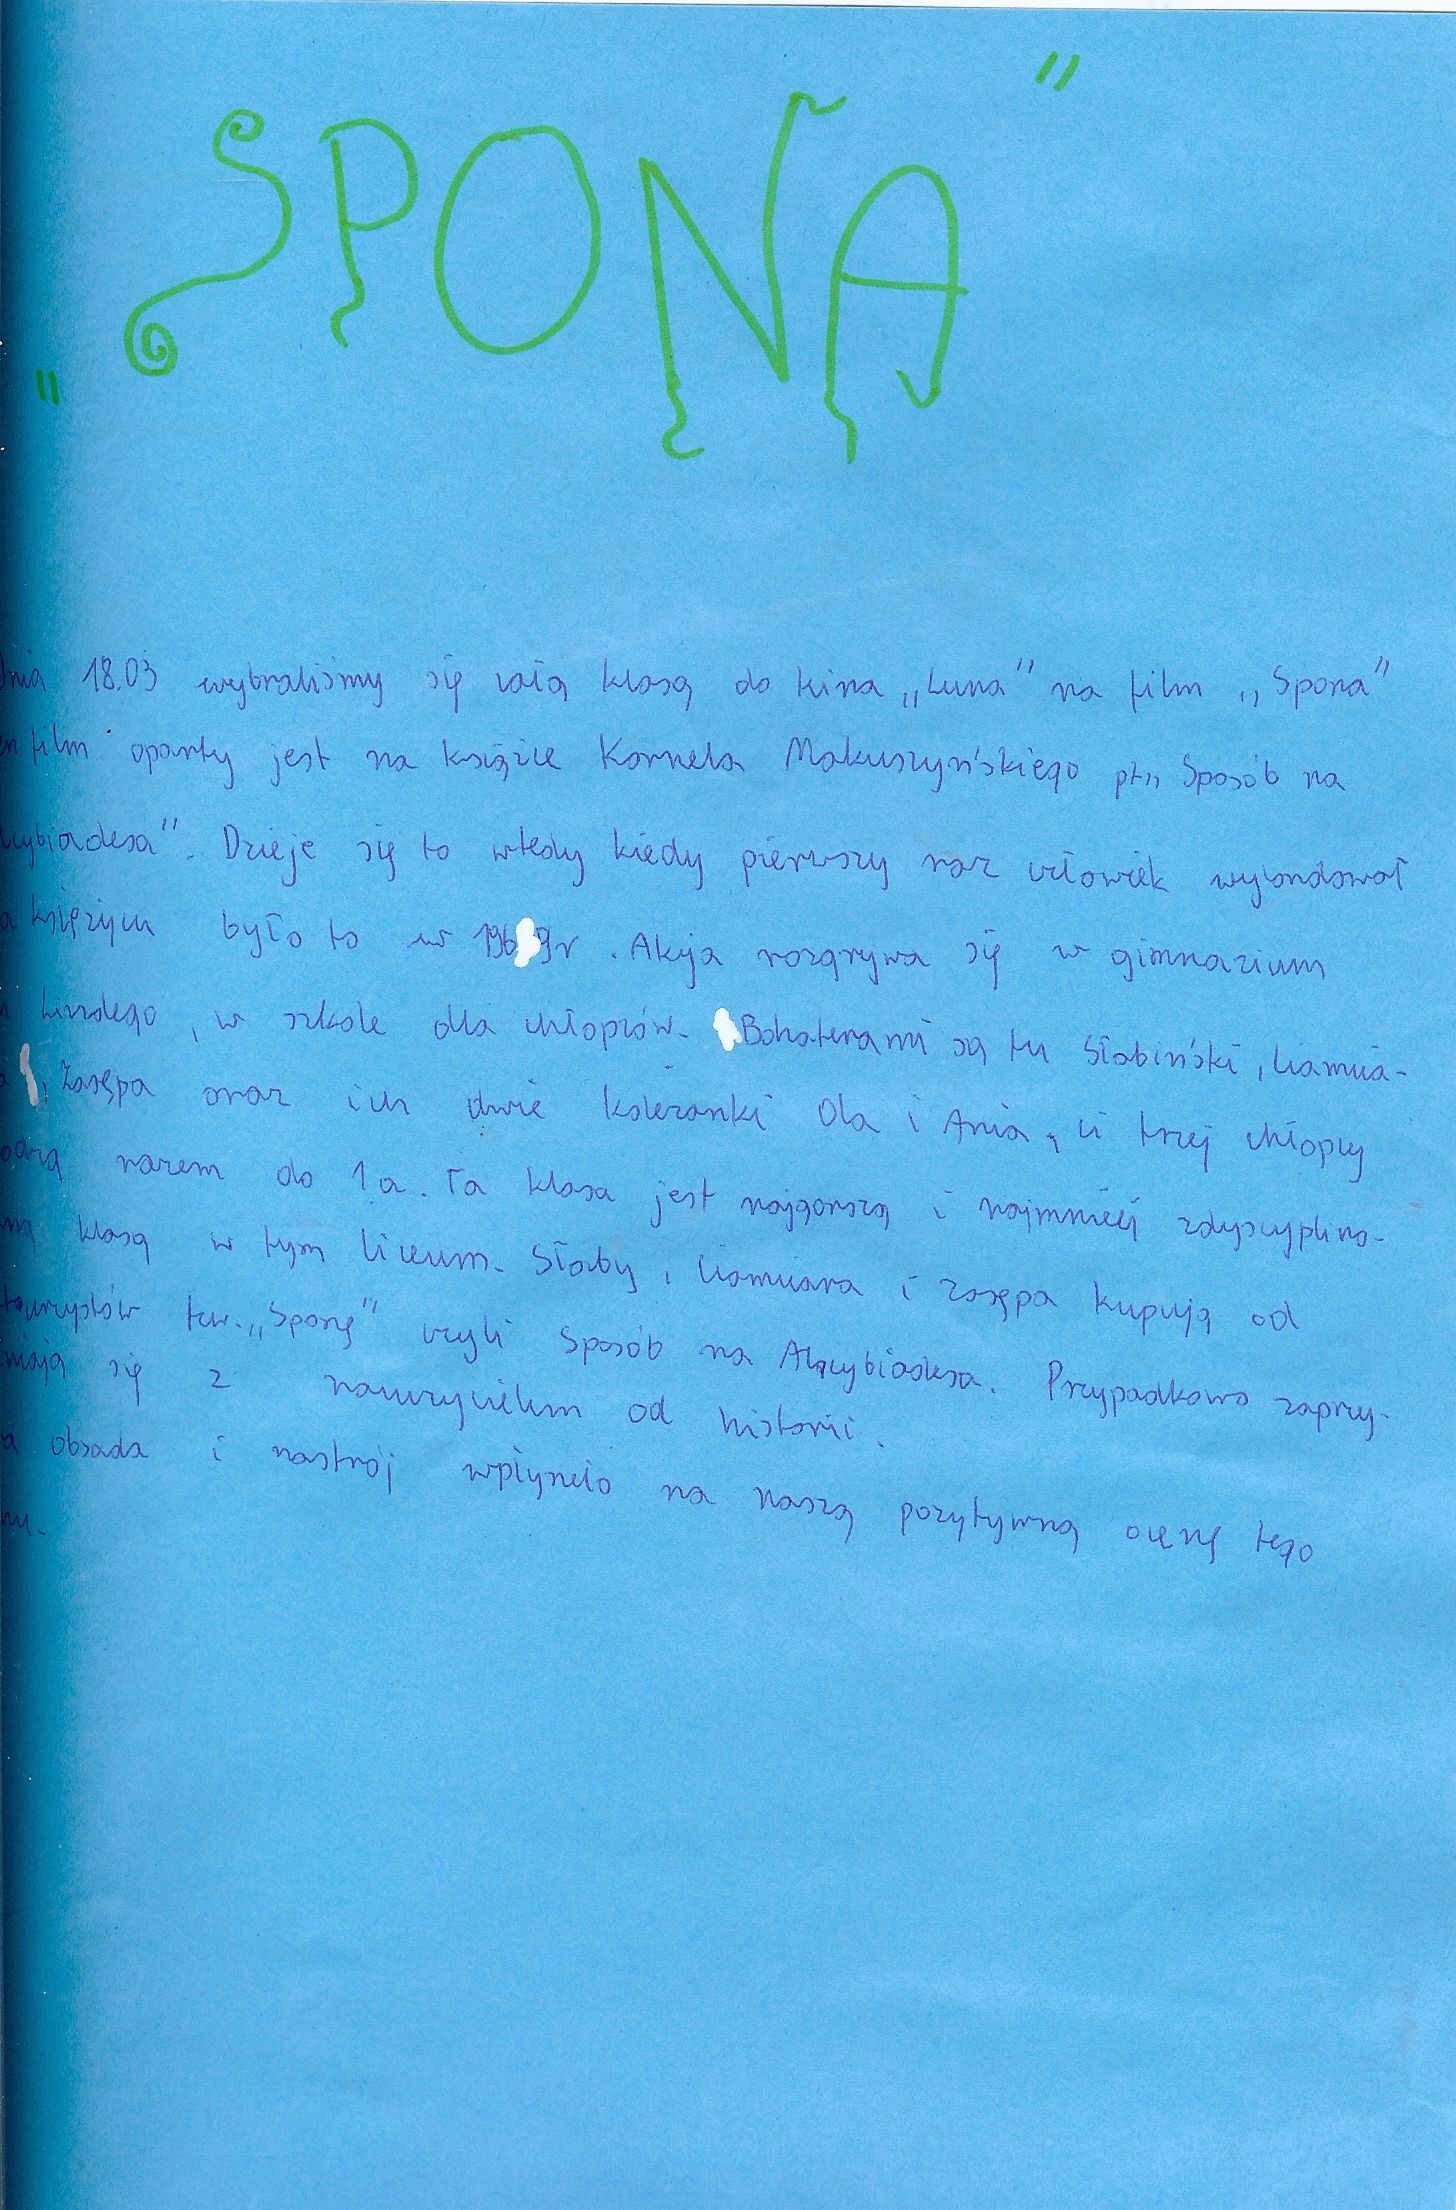 „SPONA”
Dnia 18.03 wybraliśmy się całą klasą do kina „Luna” na film „Spona”
en film oparty jest na książce Kornela Makuszyńskiego pt„ Sposób na
lcybiadesa”. Dzieje się to wtedy kiedy pierwszy raz człowiek wylondował
a księżycu było to w 1969r. Akcja rozgrywa się w gimnazium
Lindego, w szkole dla chłopców. Bohaterami są tu Słabiński, Ciamcia-
a, Zasępa oraz ich dwie koleżanki Ola i Ania, ci trzej chłopcy
odzą razem do 1a. Ta klasa jest najgorszą i najmniej zdyscyplino-
ną klasą w tym liceum. Słaby, Ciamciara i Zasępa kupują od
turzystów tzw. „Sponę” czyli Sposób na Alcybiadesa. Przypadkowo zaprzy-
niają się z nauczycielem od historii.
a obsada i nastrój wpłyneło na naszą pozytywną ocenę tego
mu.